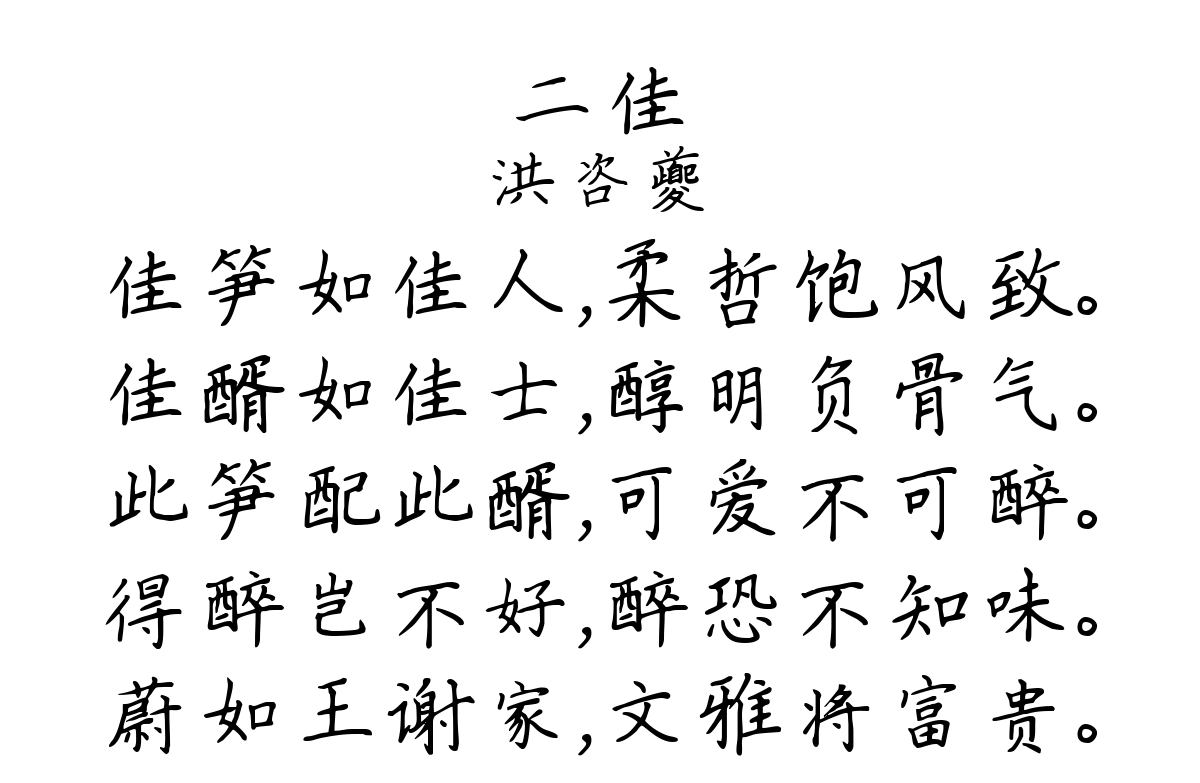 二佳
洪咨夔
佳笋如佳人,柔哲饱风致。
佳醑如佳士,醇明负骨气。
此笋配此醑,可爱不可醉。
得醉岂不好,醉恐不知味。
蔚如王谢家,文雅将富贵。